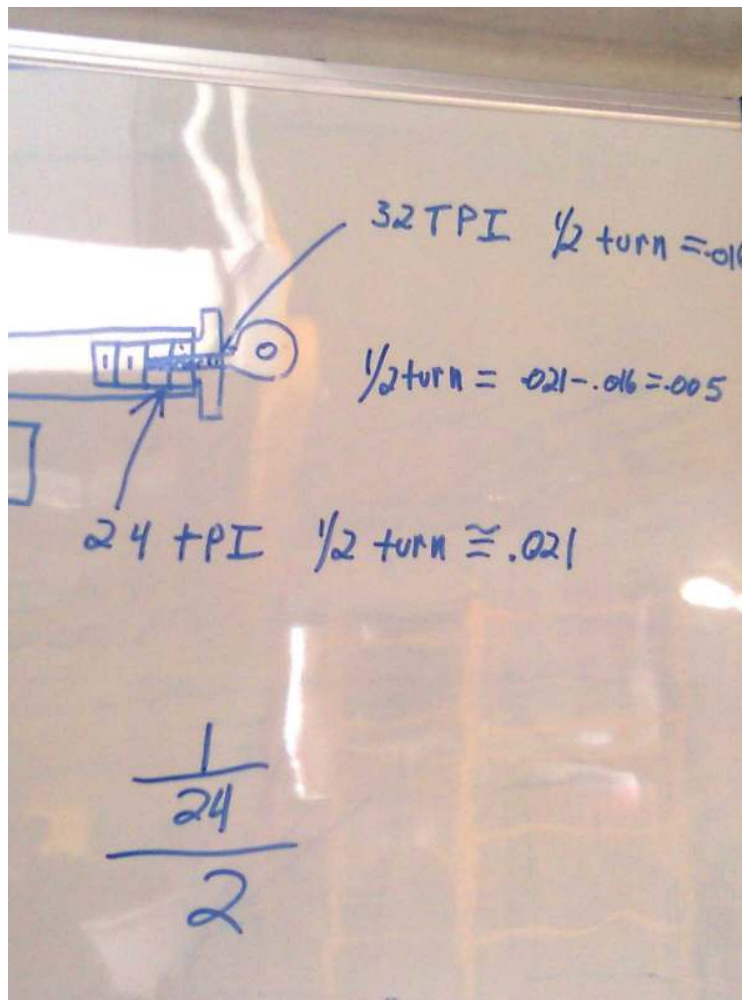 32 TPI 1/2 turn = .016
1/2 turn = .021 - .016 = .005
24 tPI 1/2 turn ≅ .021
1
24
2